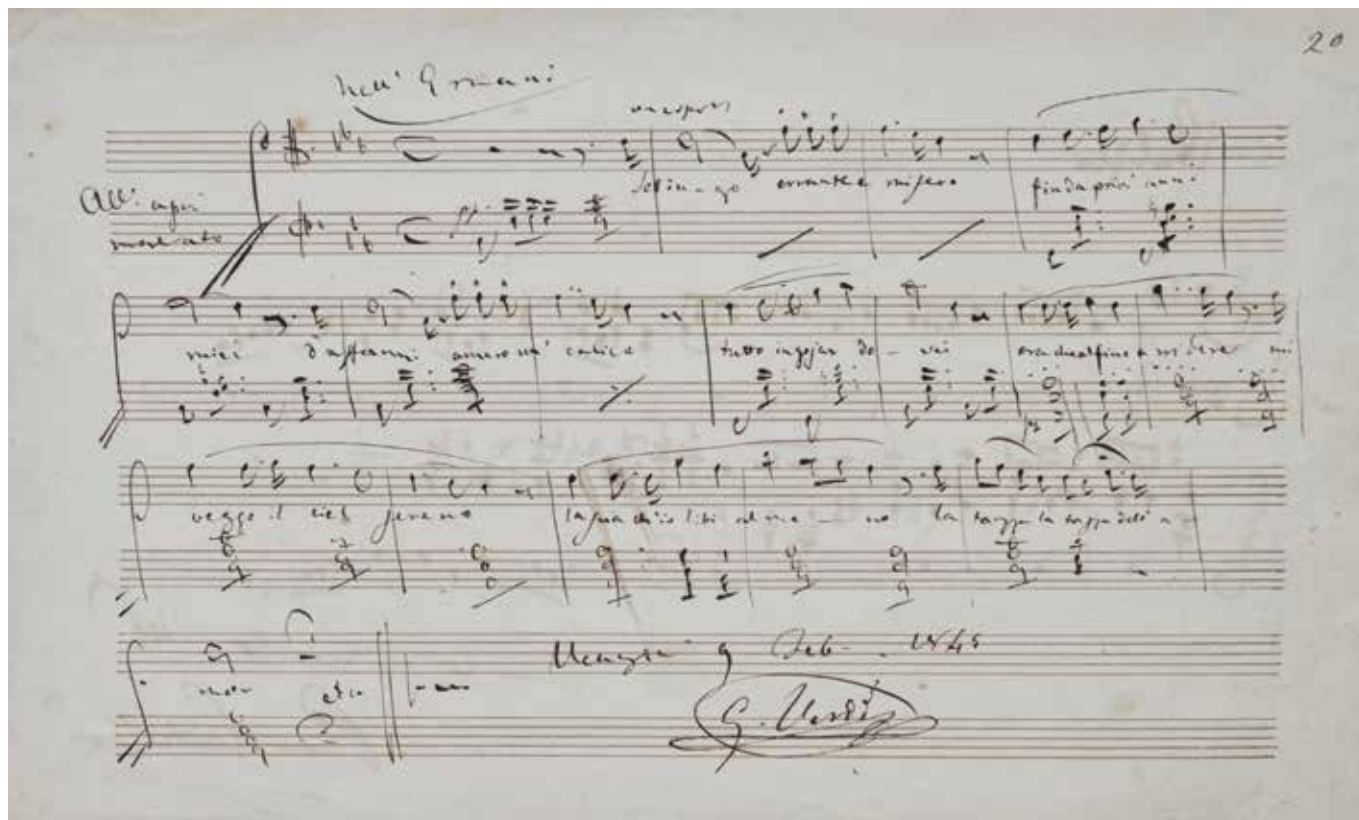 20
nell' Ernani
All: assai
moderato
Solin-go errante e misero fin da prim' anni
miei d'affanni amaro un' calice tutto ingojar do-vei ora che alfine arridere mi
veggo il ciel sereno lascia ch'io libi almeno la tazza la tazza dell' a-
mor
Venezia 9 Feb. 1845
G. Verdi